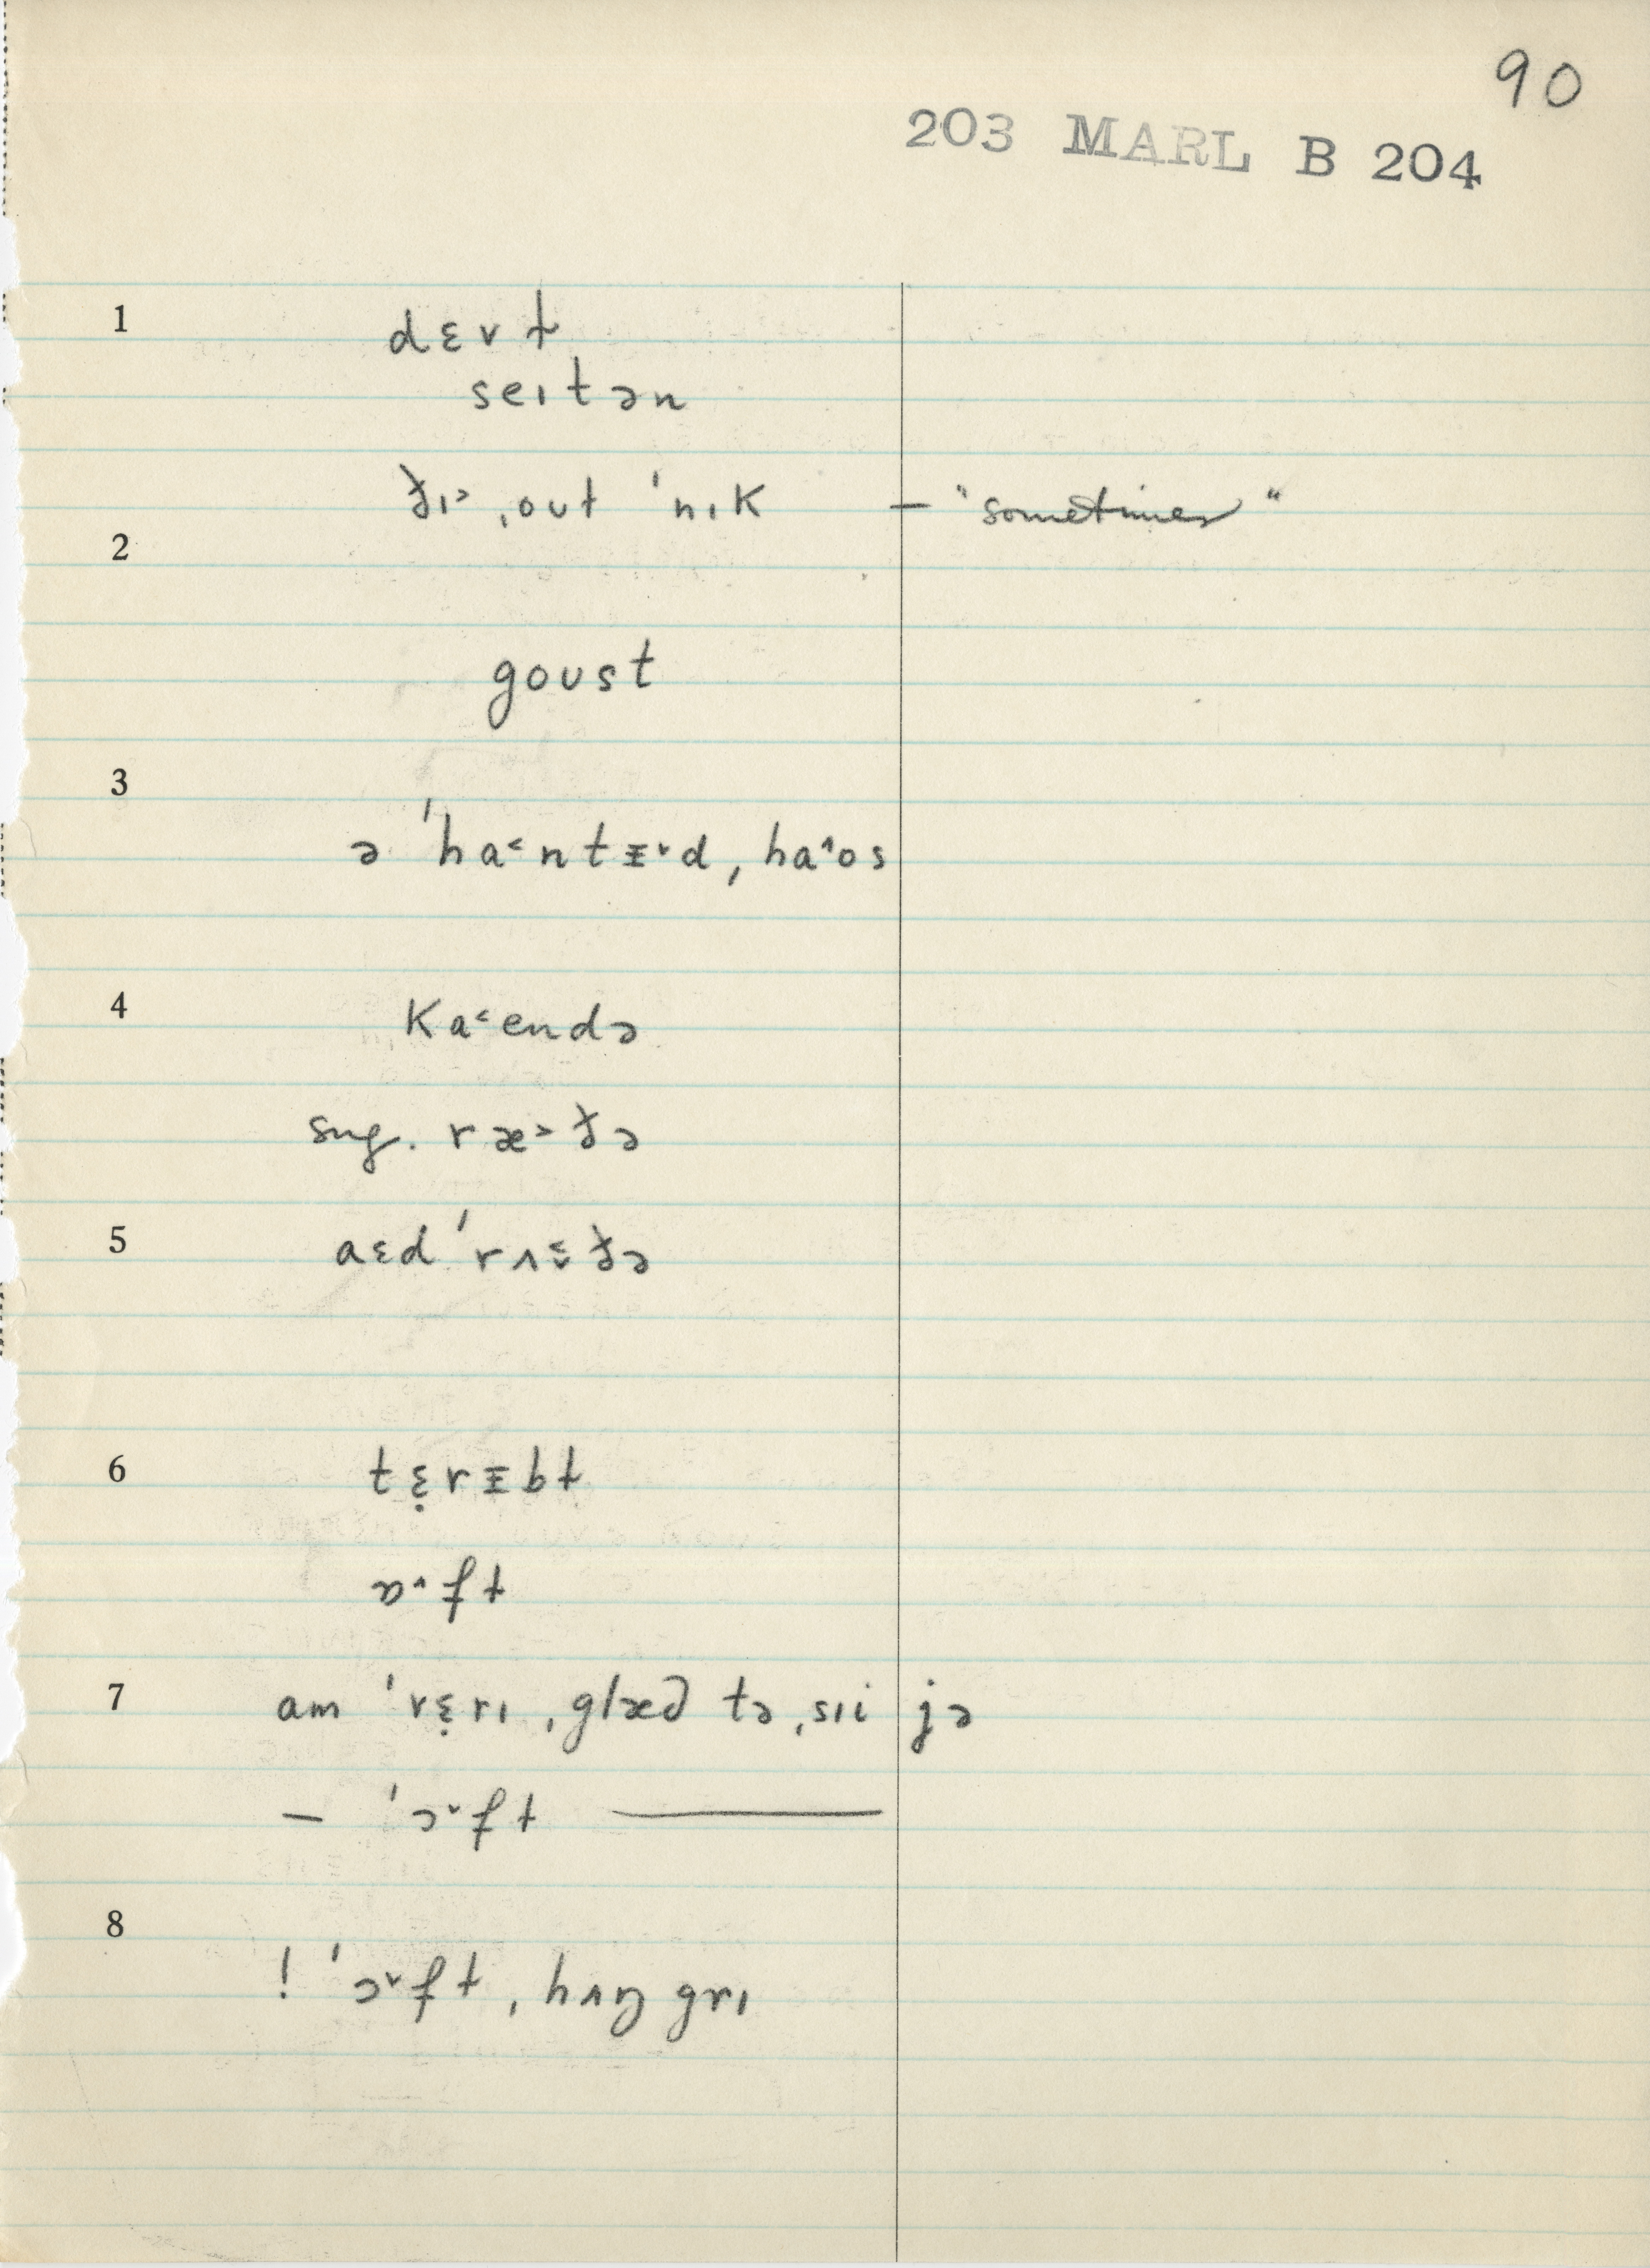 90
203 MARL B 204
1
dɛvɫ
seɪtən
ðɪ˃ ˌoʊɫ ˈnɪk — "sometimes"
2
goʊst
3
ə ˈha˂ntᵻ˅d, ha^os
4
ka˂endə
sug. ræ˃ðə
5
aɛd ˈrʌɛ̆ðə
6
tɛ̣rᵻbɫ
ɒ˄fɫ
7
am ˈvɛ̣rɪ ˌglæd tə ˌsɪi jə
— ˈɔ˅fɫ ———
8
! ˈɔ˅fɫ ˌhʌŋgrɪ